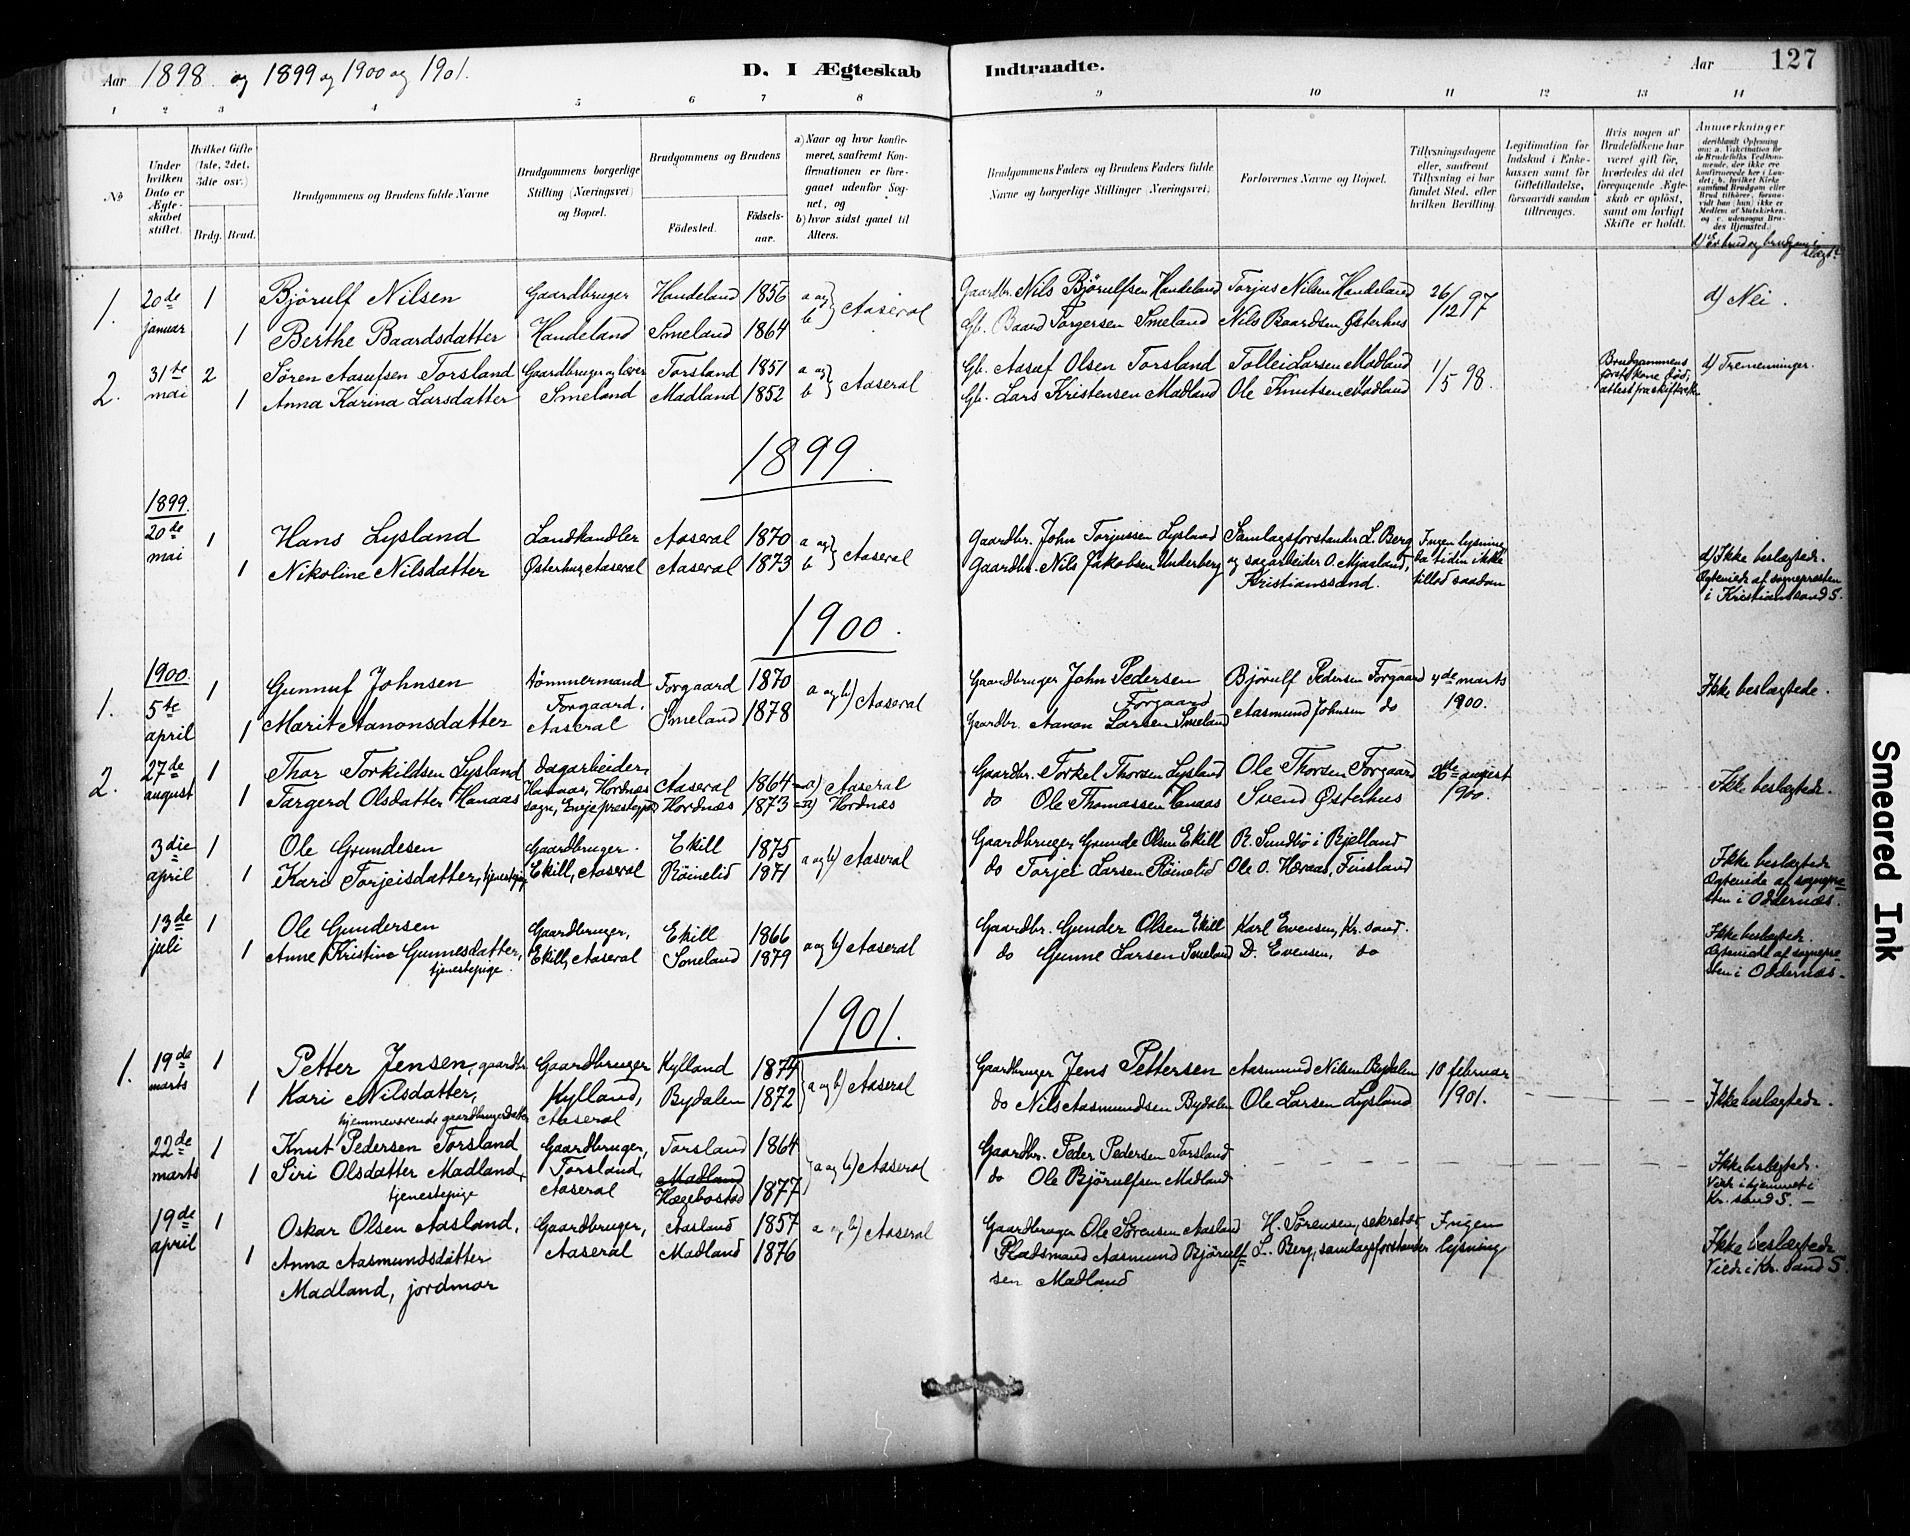 Aar 1898 og 1899 og 1900 og 1901.
D. I Ægteskab Indtraadte.
Aar 127
1 2 3 4 5 6 7 8 9 10 11 12 13 14
No
Under hvilken Dato er Ægteskabet stiftet.
Hvilket Gifte (1ste, 2det, 3die osv.)
Brdg. Brud.
Brudgommens og Brudens fulde Navne
Brudgommens borgerlige Stilling (Næringsvei) og Bopæl.
Brudgommens og Brudens
Fødested.
Fødselsaar.
a) Naar og hvor konfirmeret, saafremt Konfirmationen er foregaaet udenfor Sognet, og
b) hvor sidst gaaet til Alters.
Brudgommens Faders og Brudens Faders fulde Navne og borgerlige Stillinger (Næringsvei)
Forlovernes Navne og Bopæl.
Tillysningsdagene eller, saafremt Tillysning ei har fundet Sted, efter hvilken Bevilling.
Legitimation for Indskud i Enkekassen samt for Giftetilladelse, forsaavidt saadan tiltrænges.
Hvis nogen af Brudefolkene har været gift før, hvorledes da det foregaaende Ægteskab er opløst, samt om lovligt Skifte er holdt.
Anmerkninger
1. 20de januar 1 Bjørulf Nilsen Gaardbruger Handeland 1856 a og b} Aaseral Gaardbr. Nils Bjørulfsen Handeland Torjus Nilsen Handeland 26/12 97 d) Nei.
1 Berthe Baardsdatter Handeland Smeland 1864 Gb. Baard Torgersen Smeland Nils Baardsen Østerhus
2. 31te mai 2 Søren Aasufsen Torsland Gaardbruger og lærer Torsland 1851 a og b} Aaseral Gb. Aasuf Olsen Torsland Tollei Larsen Madland 1/5 98. Brudgommens første kone død, attest fra skifteretten d) Tremenninger.
1 Anna Karina Larsdatter Smeland Madland 1852 Gb. Lars Kristensen Madland Ole Knutsen Madland
1899.
1899.
20de mai 1 Hans Lysland Landhandler Aaseral 1870 a og b} Aaseral Gaardbr. John Torjussen Lysland Samlagsforstander L. Berg Ingen lysning,
1 Nikoline Nilsdatter Østerhus, Aaseral Aaseral 1873 Gaardbr. Nils Jakobsen Underberg og sagarbeider O. Mjaaland, Kristianssand. da tiden ikke tillod saadan d) Ikke beslægtede. Ægteviede af sognepresten i Kristianssand S.
1900.
1900.
1. 5te april 1 Gunnuf Johnsen tømmermand Forgaard 1870 a og b) Aaseral Gaardbruger John Pedersen Forgaard Bjørulf Pedersen Forgaard 4de marts 1900. Ikke beslægtede.
1 Marit Aanonsdatter Forgaard, Aaseral Smeland 1878 Gaardbr. Aanon Larsen Smeland Aasmund Johnsen do
2. 27de august 1 Thor Torkildsen Lysland Dagarbeider, Aaseral 1864 a) Aaseral Gaardbr. Torkel Thorsen Lysland Ole Thorsen Forgaard 26de august 1900. Ikke beslægtede.
1 Targerd Olsdatter Hanaas Hanaas, Hordnæs sogn, Evje prestegj. Hordnæs 1873 a) Hordnæs do Ole Thomassen Hanaas Svend Østerhus
3die april 1 Ole Grundesen Gaardbruger Ekill 1875 a og b) Aaseral Gaardbruger Grunde Olsen Ekill R. Sundbø i Bjelland
1 Kari Torjeisdatter, tjenestepige Ekill, Aaseral Røinelid 1871 do Torjei Larsen Røinelid Ole O. Heraas, Finsland Ikke beslægtede Ægteviede af sognepresten i Oddernæs.
13de juli 1 Ole Gundersen Gaardbruger, Ekill 1866 a og b) Aaseral Gaardbr. Gunder Olsen Ekill Karl Evensen, Kr.sand.
1 Anne Kristine Gunnesdatter, tjenestepige. Ekill, Aaseral Smeland 1879 do Gunne Larsen Smeland D. Evensen, do Ikke beslægtede. Ægteviede af sognepresten i Oddernæs.
1901.
1. 19de marts 1 Petter Jensen, gaardbr. Gaardbruger Kylland 1874 a og b) Aaseral Gaardbruger Jens Pettersen Aasmund Nilsen Bydalen 10 februar 1901.
1 Kari Nilsdatter, hjemmeværende gaardbrugerdatter Kylland, Aaseral Bydalen 1872 do Nils Aasmundsen Bydalen Ole Larsen Lysland Ikke beslægtede.
22de marts 1 Knut Pedersen Torsland Gaardbruger, Torsland 1864 a og b) Aaseral Gaardbr. Peder Pedersen Torsland
1 Siri Olsdatter Madland, tjenestepige Torsland, Aaseral Madland Hægebostad 1877 do Ole Bjørulfsen Madland Ikke beslægtede. Viede i hjemmet i Kr.sand S.
19de april 1 Oskar Olsen Aasland, Gaardbruger, Aasland 1857 a og b) Aaseral Gaardbruger Ole Sørensen Aasland H. Sørensen, sekretær Ingen lysning
1 Anna Aasmundsdatter Madland, jordmor Aaseral Madland 1876 Pladsmand Aasmund Bjørulfsen Madland L. Berg, samlagsforstander Ikke beslægtede Viede i Kr.sand S.
Smeared Ink